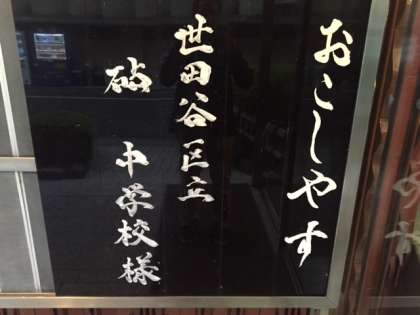 おこしやす
世田谷区立
砧 中学校様